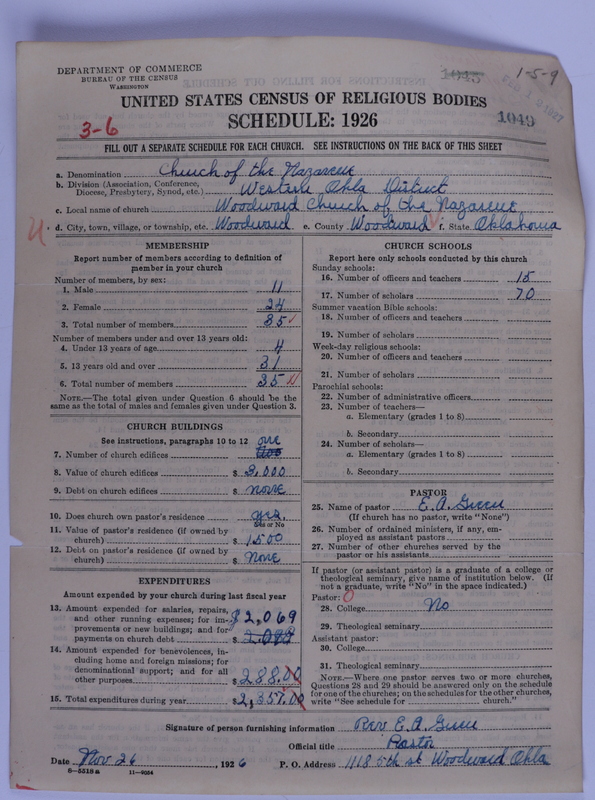 DEPARTMENT OF COMMERCE
BUREAU OF THE CENSUS
WASHINGTON
1045
1-5-9
UNITED STATES CENSUS OF RELIGIOUS BODIES
3-6
SCHEDULE: 1926
1049
FILL OUT A SEPARATE SCHEDULE FOR EACH CHURCH. SEE INSTRUCTIONS ON THE BACK OF THIS SHEET
a. Denomination Church of the Nazarene
b. Division (Association, Conference, Diocese, Presbytery, Synod, etc.) Western Okla District
c. Local name of church Woodward Church of the Nazarene
d. City, town, village, or township, etc. Woodward e. County Woodward f. State Oklahoma
MEMBERSHIP
Report number of members according to definition of
member in your church
Number of members, by sex:
1. Male 11
2. Female 24
3. Total number of members 35
Number of members under and over 13 years old:
4. Under 13 years of age 4
5. 13 years old and over 31
6. Total number of members 35
NOTE.—The total given under Question 6 should be the
same as the total of males and females given under Question 3.
CHURCH BUILDINGS
See instructions, paragraphs 10 to 12 one
7. Number of church edifices
8. Value of church edifices $ 3,000
9. Debt on church edifices $ none
10. Does church own pastor's residence yes
Yes or No
11. Value of pastor's residence (if owned by
church) $ 1500
12. Debt on pastor's residence (if owned by
church) $ None
EXPENDITURES
Amount expended by your church during last fiscal year
13. Amount expended for salaries, repairs,
and other running expenses; for im- $ 2,069
provements or new buildings; and for
payments on church debt $
14. Amount expended for benevolences, in-
cluding home and foreign missions; for
denominational support; and for all
other purposes $ 288.00
15. Total expenditures during year $ 2,357.00
CHURCH SCHOOLS
Report here only schools conducted by this church
Sunday schools:
16. Number of officers and teachers 15
17. Number of scholars 70
Summer vacation Bible schools:
18. Number of officers and teachers
19. Number of scholars
Week-day religious schools:
20. Number of officers and teachers
21. Number of scholars
Parochial schools:
22. Number of administrative officers
23. Number of teachers—
a. Elementary (grades 1 to 8)
b. Secondary
24. Number of scholars—
a. Elementary (grades 1 to 8)
b. Secondary
PASTOR
25. Name of pastor E. A.
(If church has no pastor, write "None")
26. Number of ordained ministers, if any, em-
ployed as assistant pastors
27. Number of other churches served by the
pastor or his assistants
If pastor (or assistant pastor) is a graduate of a college or
theological seminary, give name of institution below. (If
not a graduate, write "No" in the space indicated.)
Pastor: 0
28. College No
29. Theological seminary
Assistant pastor:
30. College
31. Theological seminary
NOTE.—Where one pastor serves two or more churches,
Questions 28 and 29 should be answered only on the schedule
for one of the churches; on the schedules for the other churches,
write "See schedule for church."
Signature of person furnishing information Rev E. A.
Official title Pastor
Date Nov 26, 1926 P. O. Address 1118 5th st Woodward Okla
8-5518 a 11-9054